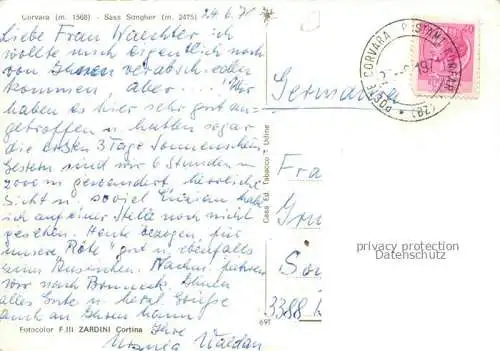 Corvara (m. 1568) - Sass Songher (m. 2475)
24.6.71
Liebe Frau Waechter ich
wollte mich eigentlich noch
von Ihnen verabschieden
kommen, aber...! Wir
haben es hier sehr gut an-
getroffen u. hatten sogar
die ersten 3 Tage Sonnenschein
Gestern sind wir 6 Stunden in
2000 m gewandert, herrliche
Sicht u. soviel Enzian habe
ich auf einer Stelle noch nicht
gesehen. Heute bezogen für
unsere gut u. ebenfalls
zum Nachm. fahren
wir nach Bruneck. Ihnen
alles Gute u. herzl. Grüsse
auch an Ihren Mann
Ihre
Fotocolor F.lli ZARDINI Cortina
691
Casa Ed. Tabacco - Udine
Germania
Fra
3388
POSTE CORVARA
(BZ)
privacy protection
Datenschutz